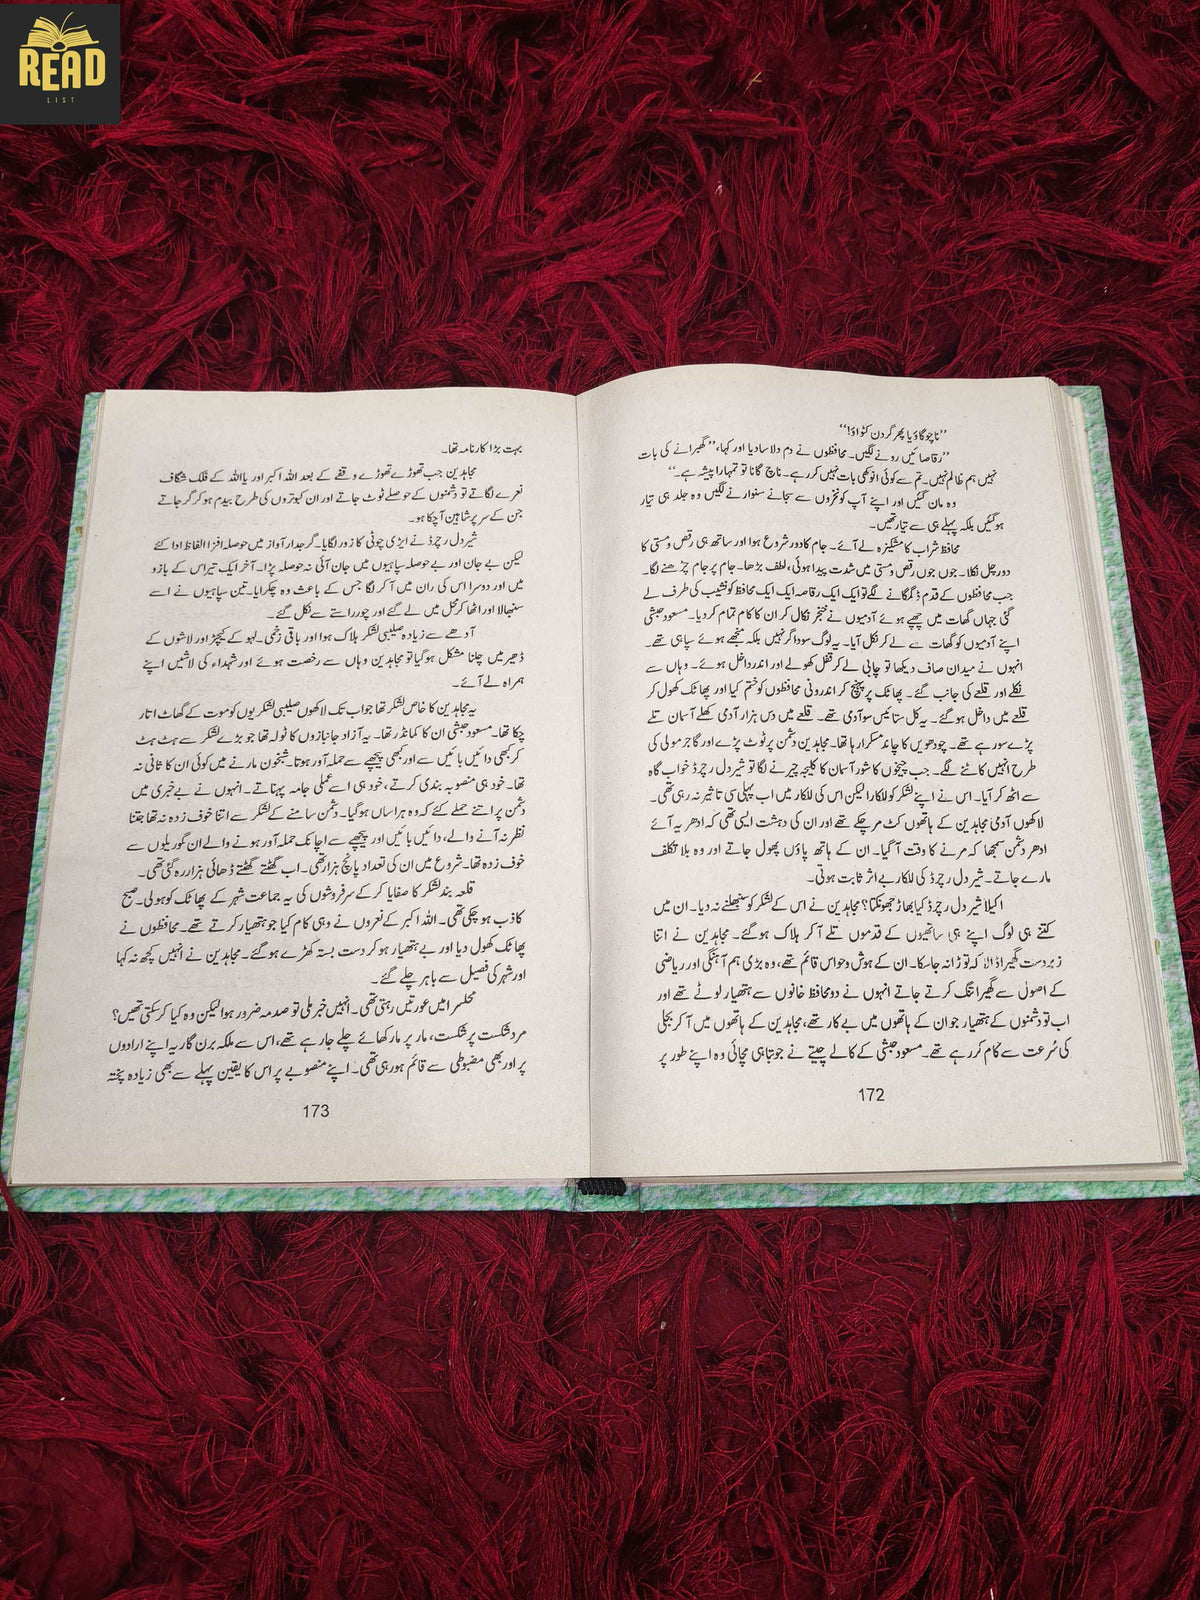 READ
LIST
’’ناچو گاؤ یا پھر گردن کٹواؤ!‘‘
’’رقاصائیں رونے لگیں۔ محافظوں نے دم دلاسا دیا اور کہا، ’’گھبرانے کی بات
نہیں ہم ظالم نہیں۔ تم سے کوئی انوکھی بات نہیں کر رہے۔ ناچ گانا تو تمہارا پیشہ ہے۔‘‘
وہ مان گئیں اور اپنے آپ کو نخروں سے سجانے سنوارنے لگیں وہ جلد ہی تیار
ہو گئیں بلکہ پہلے ہی سے تیار تھیں۔
محافظ شراب کا مشکیزہ لے آئے۔ جام کا دور شروع ہوا اور ساتھ ہی رقص و مستی کا
دور چل نکلا۔ جوں جوں رقص و مستی میں شدت پیدا ہوئی، لطف بڑھا۔ جام پر جام چڑھنے لگا۔
جب محافظوں کے قدم ڈگمگانے لگے تو ایک ایک رقاصہ ایک ایک محافظ کو نشیب کی طرف لے
گئی جہاں گھات میں چھپے ہوئے آدمیوں نے خنجر نکال کر ان کا کام تمام کر دیا۔ مسعود حبشی
اپنے آدمیوں کو گھات سے لے کر نکل آیا۔ یہ لوگ سوداگر نہیں بلکہ منجھے ہوئے سپاہی تھے۔
انہوں نے میدان صاف دیکھا تو چابی لے کر قفل کھولے اور اندر داخل ہوئے۔ وہاں سے
نکلے اور قلعے کی جانب گئے۔ پھاٹک پر پہنچ کر اندرونی محافظوں کو ختم کیا اور پھاٹک کھول کر
قلعے میں داخل ہو گئے۔ یہ کل ستائیس سو آدمی تھے۔ قلعے میں دس ہزار آدمی کھلے آسمان تلے
پڑے سو رہے تھے۔ چودھویں کا چاند مسکرا رہا تھا۔ مجاہدین دشمن پر ٹوٹ پڑے اور گاجر مولی کی
طرح انہیں کاٹنے لگے۔ جب چیخوں کا شور آسمان کا کلیجہ چیرنے لگا تو شیر دل رچرڈ خواب گاہ
سے اٹھ کر آیا۔ اس نے اپنے لشکر کو للکارا لیکن اس کی للکار میں اب پہلی سی تاثیر نہ رہی تھی۔
لاکھوں آدمی مجاہدین کے ہاتھوں کٹ مر چکے تھے اور ان کی دہشت ایسی تھی کہ ادھر یہ آئے
ادھر دشمن سمجھا کہ مرنے کا وقت آ گیا۔ ان کے ہاتھ پاؤں پھول جاتے اور وہ بلا تکلف
مارے جاتے۔ شیر دل رچرڈ کی للکار بے اثر ثابت ہوتی۔
اکیلا شیر دل رچرڈ کیا بھاڑ جھونکتا؟ مجاہدین نے اس کے لشکر کو سنبھلنے نہ دیا۔ ان میں
کتنے ہی لوگ اپنے ہی ساتھیوں کے قدموں تلے آ کر ہلاک ہو گئے۔ مجاہدین نے اتنا
زبردست گھیرا ڈالا کہ توڑا نہ جا سکا۔ ان کے ہوش و حواس قائم تھے، وہ بڑی ہم آہنگی اور ریاضی
کے اصول سے گھیرا تنگ کرتے جاتے انہوں نے دو محافظ خانوں سے ہتھیار لوٹے تھے اور
اب تو دشمنوں کے ہتھیار جو ان کے ہاتھوں میں بے کار تھے، مجاہدین کے ہاتھوں میں آ کر بجلی
کی سُرعت سے کام کر رہے تھے۔ مسعود حبشی کے کالے چیتے نے جو تباہی مچائی وہ اپنے طور پر
172
بہت بڑا کارنامہ تھا۔
مجاہدین جب تھوڑے تھوڑے وقفے کے بعد اللہ اکبر اور یا اللہ کے فلک شگاف
نعرے لگاتے تو دشمنوں کے حوصلے ٹوٹ جاتے اور ان کبوتروں کی طرح بیدم ہو کر گر جاتے
جن کے سر پر شاہین آ چکا ہو۔
شیر دل رچرڈ نے ایڑی چوٹی کا زور لگایا۔ گرجدار آواز میں حوصلہ افزا الفاظ ادا کئے
لیکن بے جان اور بے حوصلہ سپاہیوں میں جان آئی نہ حوصلہ پڑا۔ آخر ایک تیر اس کے بازو
میں اور دوسرا اس کی ران میں آ کر لگا جس کے باعث وہ چکرایا۔ تین سپاہیوں نے اسے
سنبھالا اور اٹھا کر محل میں لے گئے اور چور راستے سے نکل گئے۔
آدھے سے زیادہ صلیبی لشکر ہلاک ہوا اور باقی زخمی۔ لہو کے کیچڑ اور لاشوں کے
ڈھیر میں چلنا مشکل ہو گیا تو مجاہدین وہاں سے رخصت ہوئے اور شہداء کی لاشیں اپنے
ہمراہ لے آئے۔
یہ مجاہدین کا خاص لشکر تھا جو اب تک لاکھوں صلیبی لشکریوں کو موت کے گھاٹ اتار
چکا تھا۔ مسعود حبشی ان کا کمانڈر تھا۔ یہ آزاد جانبازوں کا ٹولہ تھا جو بڑے لشکر سے ہٹ ہٹ
کر کبھی دائیں بائیں سے اور کبھی پیچھے سے حملہ آور ہوتا۔ شبخون مارنے میں کوئی ان کا ثانی نہ
تھا۔ خود ہی منصوبہ بندی کرتے، خود ہی اسے عملی جامہ پہناتے۔ انہوں نے بے خبری میں
دشمن پر اتنے حملے کئے کہ وہ ہراساں ہو گیا۔ دشمن سامنے کے لشکر سے اتنا خوف زدہ نہ تھا جتنا
نظر نہ آنے والے، دائیں بائیں اور پیچھے سے اچانک حملہ آور ہونے والے ان گوریلوں سے
خوف زدہ تھا۔ شروع میں ان کی تعداد پانچ ہزار تھی۔ اب گھٹتے گھٹتے ڈھائی ہزار رہ گئی تھی۔
قلعہ بند لشکر کا صفایا کر کے سرفروشوں کی یہ جماعت شہر کے پھاٹک کو ہولی۔ صبح
کاذب ہو چکی تھی۔ اللہ اکبر کے نعروں نے وہی کام کیا جو ہتھیار کرتے تھے۔ محافظوں نے
پھاٹک کھول دیا اور بے ہتھیار ہو کر دست بستہ کھڑے ہو گئے۔ مجاہدین نے انہیں کچھ نہ کہا
اور شہر کی فصیل سے باہر چلے گئے۔
محلسرا میں عورتیں رہتی تھی۔ انہیں خبر ملی تو صدمہ ضرور ہوا لیکن وہ کیا کر سکتی تھیں؟
مرد شکست پر شکست، مار پر مار کھائے چلے جا رہے تھے، اس سے ملکہ برن گاریہ اپنے ارادوں
پر اور بھی مضبوطی سے قائم ہو رہی تھی۔ اپنے منصوبے پر اس کا یقین پہلے سے بھی زیادہ پختہ
173